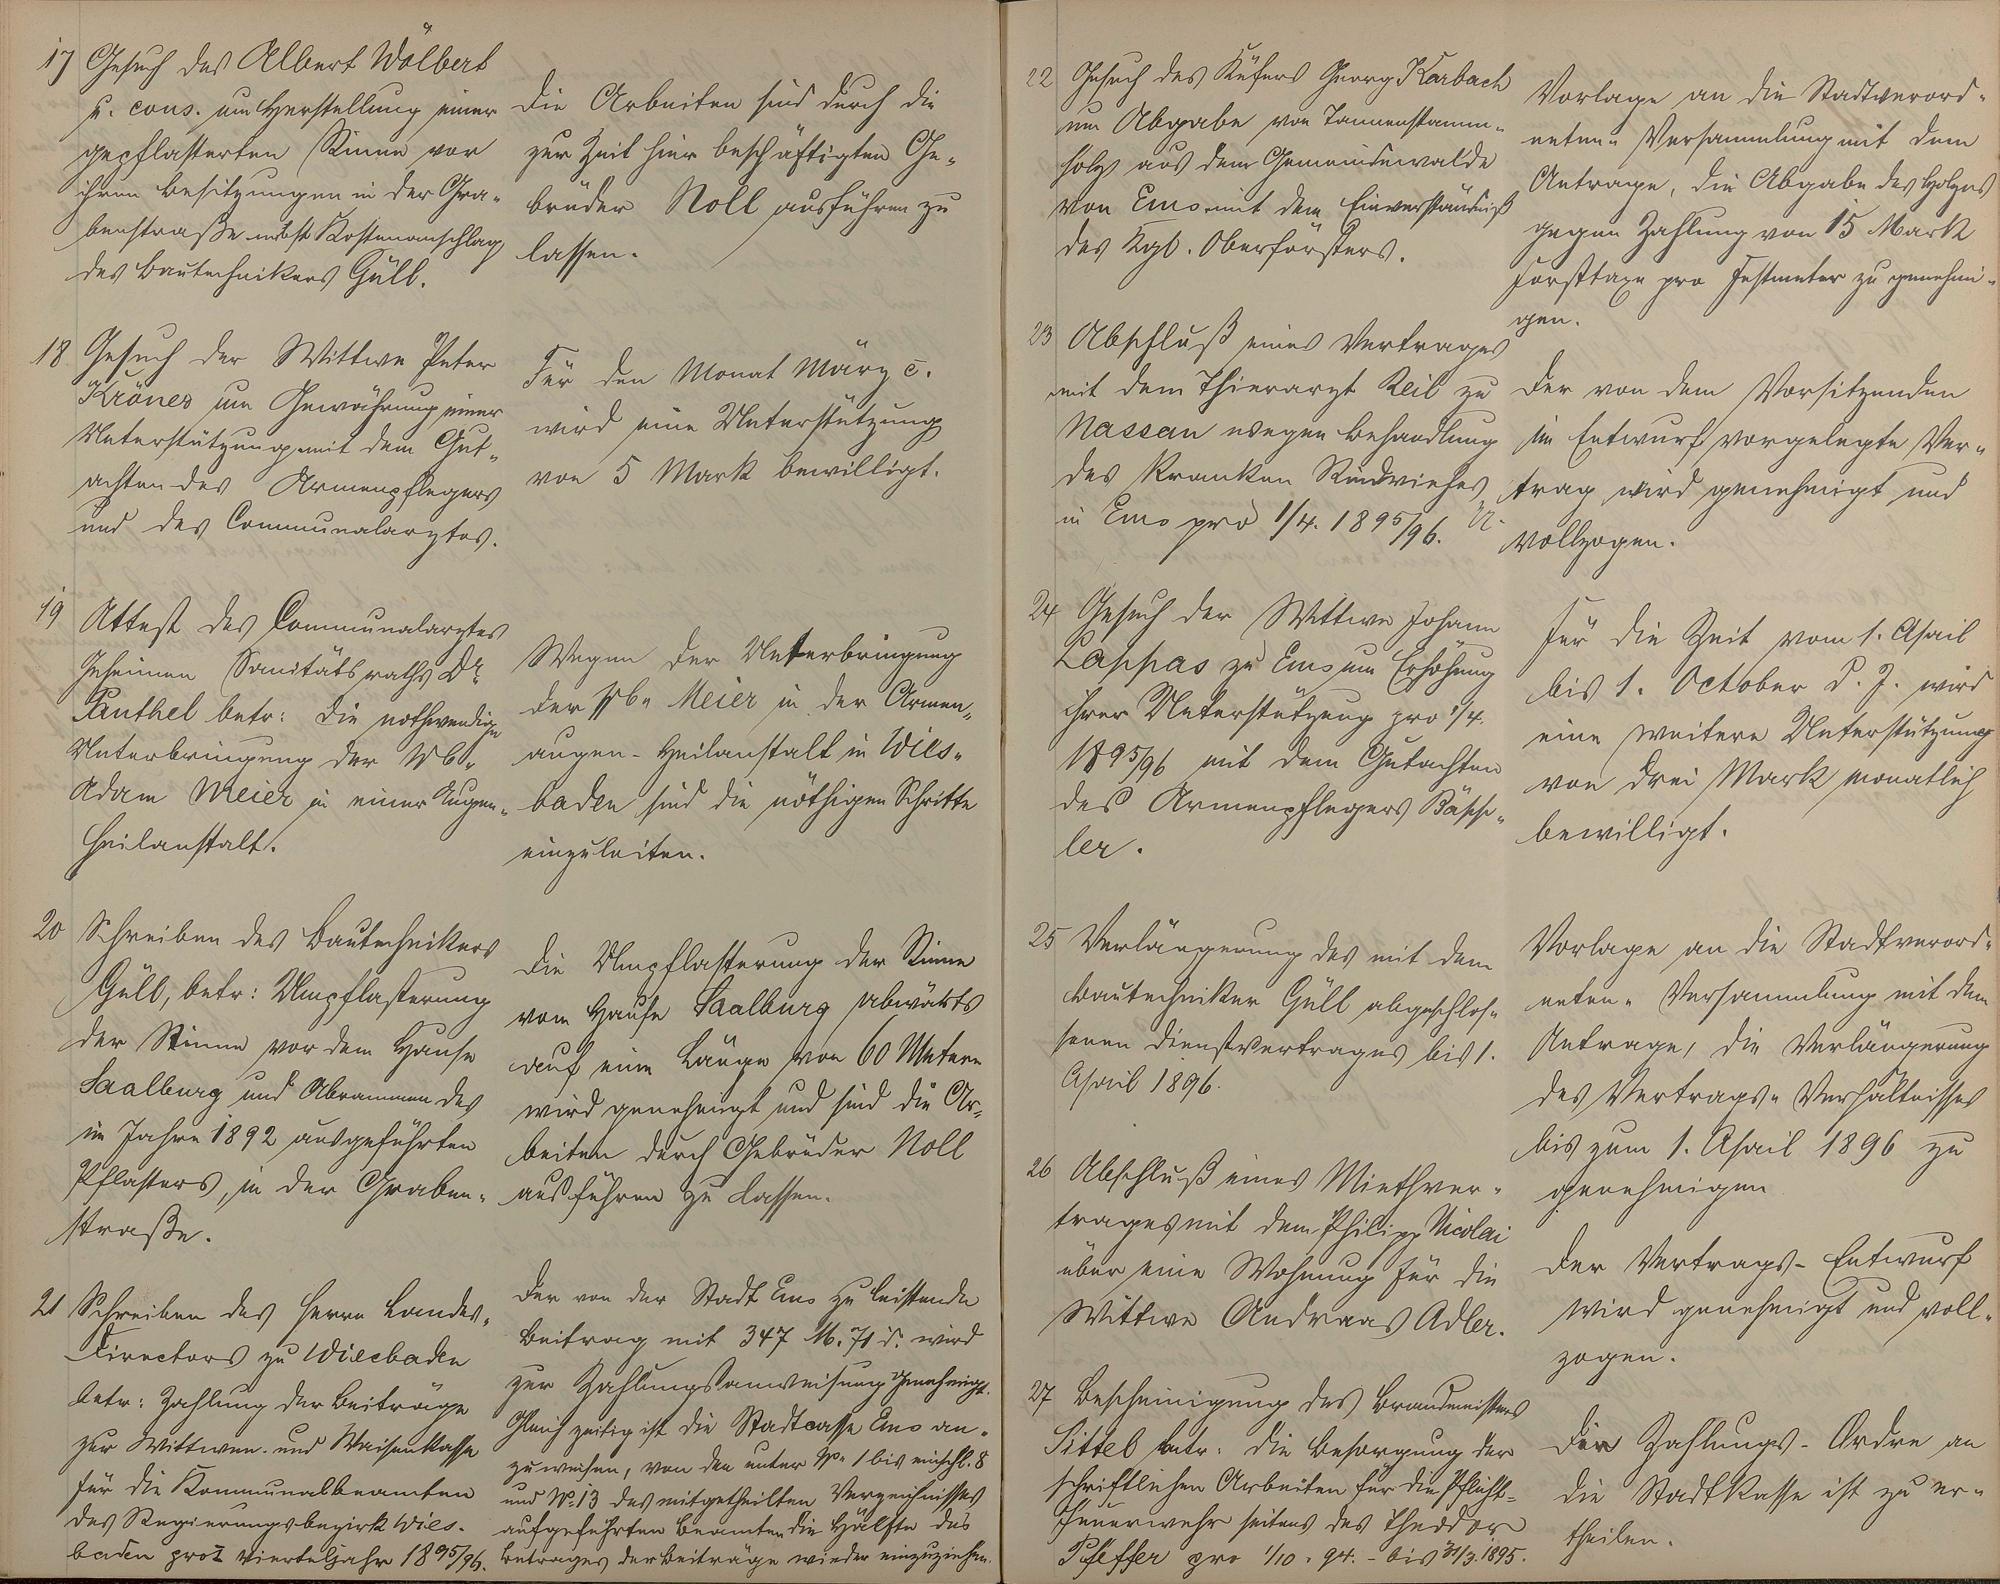 17 Gesuch des Albert Wölbert
u. cons. um Herstellung einer
gepflasterten Rinne vor
ihren Besitzungen in der Gra-
benstraße nebst Kostenanschlag
des Bautechnikers Güll.
Die Arbeiten sind durch die
zur Zeit hier beschäftigten Ge-
brüder Noll ausführen zu
lassen.
18 Gesuch der Wittwe Peter
Kröner um Gewährung einer
Unterstützung mit dem Gut-
achten des Armenpflegers
und des Communalarztes.
Für den Monat März c.
wird eine Unterstützung
von 5 Mark bewilligt.
19 Attest des Communalarztes
Geheimen Sanitätsraths Dr.
Panthel betr: die nothwendige
Unterbringung der Wb.
Adam Meier in einer Augen-
heilanstalt.
Wegen der Unterbringung
der Meier in der Armen-
augen-Heilanstalt in Wies-
baden sind die nöthigen Schritte
einzuleiten.
20 Schreiben des Bautechnikers
Güll, betr: Umpflasterung
der Rinne vor dem Hause
Saalburg und Abrammen des
im Jahre 1892 ausgeführten
Pflasters, in der Graben-
straße.
Die Umpflasterung der Rinne
vom Hause Saalburg abwärts
auf eine Länge von 60 Metern
wird genehmigt und sind die Ar-
beiten durch Gebrüder Noll
ausführen zu lassen.
21 Schreiben des Herrn Landes-
Directors zu Wiesbaden
betr: Zahlung der Beiträge
zur Wittwen- und Waisenkasse
für die Kommunalbeamten
des Regierungsbezirk Wies-
baden pro I Vierteljahr 1895/96.
Der von der Stadt Ems zu leistende
Beitrag mit 347 M. 71 d. wird
zur Zahlungsanweisung genehmigt.
Gleichzeitig ist die Stadtcasse Ems an-
zuweisen, von den unter No. 1 bis einschl. 8
und No. 13 des mitgetheilten Verzeichnisses
aufgeführten Beamten die Hälfte des
Betrages der Beiträge wieder einzuziehen.
22 Gesuch des Küfers Georg Karbach
um Abgabe von Tannenstamm-
holz aus dem Gemeindewalde
von Ems mit dem Einverständniß
des Kgl. Oberförsters.
Vorlage an die Stadtverord-
neten-Versammlung mit dem
Antrage, die Abgabe des Holzes
gegen Zahlung von 15 Mark
Forsttaxe pro Festmeter zu genehmi-
gen.
23 Abschluß eines Vertrages
mit dem Thierarzt Reil zu
Nassau wegen Behandlung
des kranken Rindviehes
in Ems pro 1/4. 1895/96.
Der von dem Vorsitzenden
im Entwurf vorgelegte Ver-
trag wird genehmigt und
vollzogen.
24 Gesuch der Wittwe Johann
Lappas zu Ems um Erhöhung
ihrer Unterstützung pro 1/4.
1895/96 mit dem Gutachten
des Armenpflegers Bäpp-
ler.
Für die Zeit vom 1. April
bis 1. October d. J. wird
eine weitere Unterstützung
von drei Mark monatlich
bewilligt.
25 Verlängerung des mit dem
Bautechniker Güll abgeschlos-
senen Dienstvertrages bis 1.
April 1896.
Vorlage an die Stadtverord-
neten-Versammlung mit dem
Antrage, die Verlängerung
des Vertrags-Verhältnisses
bis zum 1. April 1896 zu
genehmigen
26 Abschluß eines Miethver-
trages mit dem Philipp Nicolai
über eine Wohnung für die
Wittwe Andreas Adler.
Der Vertrags-Entwurf
wird genehmigt und voll-
zogen.
27 Bescheinigung des Brandmeisters
Sittel betr: die Besorgung der
schriftlichen Arbeiten für die Pflicht-
feuerwehr seitens des Theodor
Pfeffer pro 1/10. 94. - bis 31/3. 1895.
Die Zahlungs-Ordre an
die Stadtkasse ist zu er-
theilen.